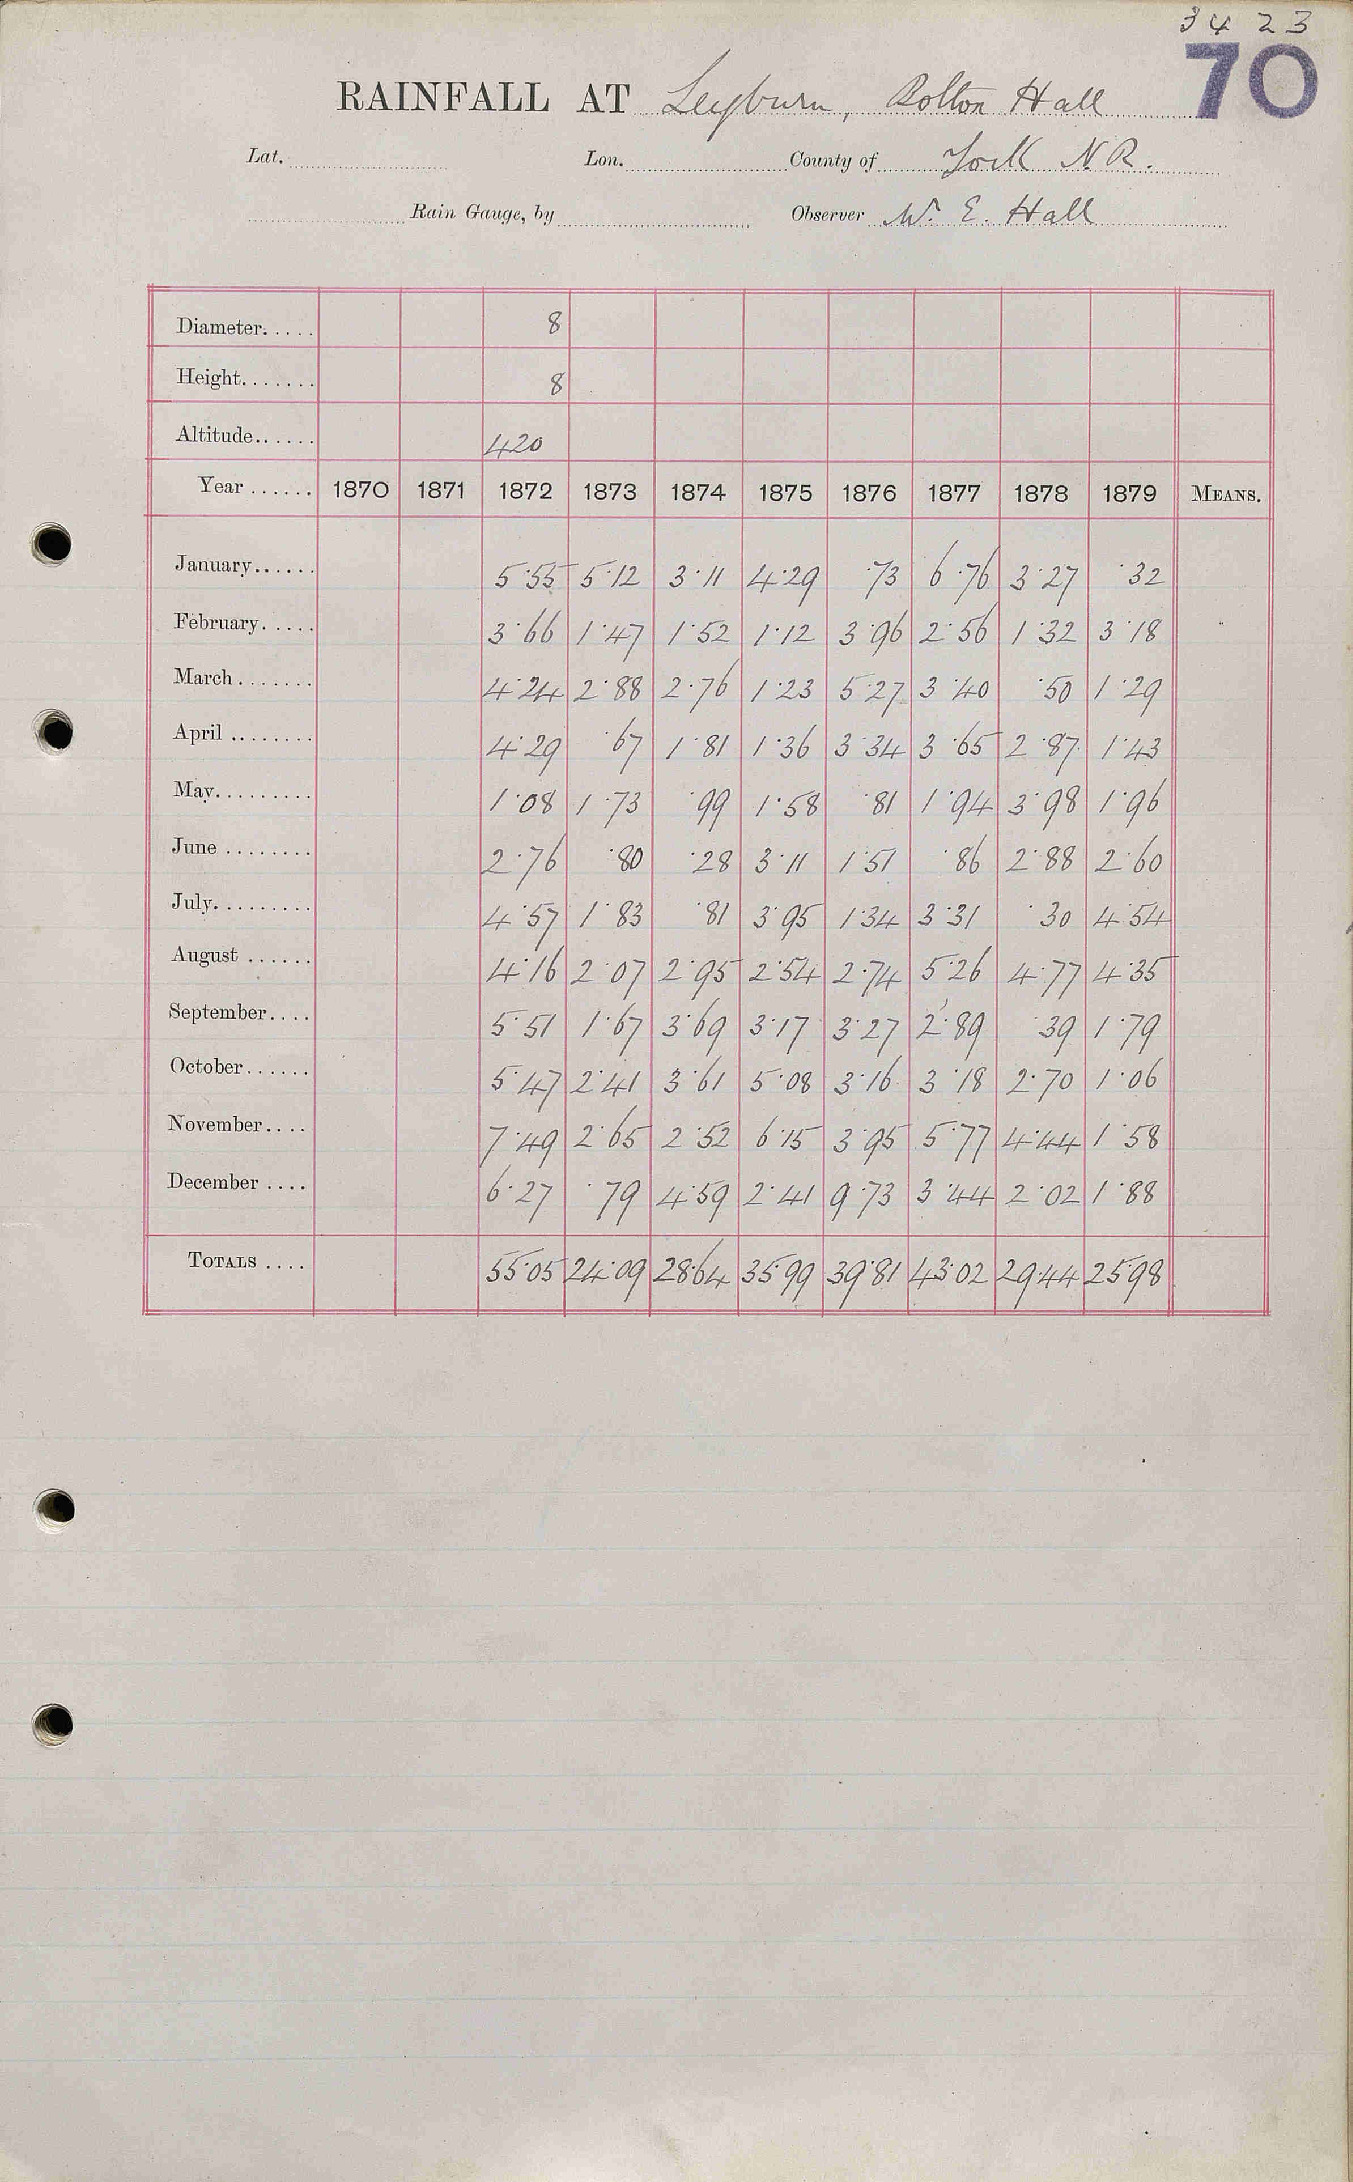 3423
70
RAINFALL AT Leyburn, Bolton Hall
Lat. Lon. County of York N.R.
Rain Gauge, by Observer W. E. Hall
Diameter..... 8
Height....... 8
Altitude...... 420
Year ...... 1870 1871 1872 1873 1874 1875 1876 1877 1878 1879 MEANS.
January...... 5·55 5·12 3·11 4·29 ·73 6·76 3·27 ·32
February..... 3·66 1·47 1·52 1·12 3·96 2·56 1·32 3·18
March....... 4·24 2·88 2·76 1·23 5·27 3·40 ·50 1·29
April ........ 4·29 ·67 1·81 1·36 3·34 3·65 2·87 1·43
May......... 1·08 1·73 ·99 1·58 ·81 1·94 3·98 1·96
June ........ 2·76 ·80 ·28 3·11 1·51 ·86 2·88 2·60
July......... 4·57 1·83 ·81 3·95 1·34 3·31 ·30 4·54
August ...... 4·16 2·07 2·95 2·54 2·74 5·26 4·77 4·35
September.... 5·51 1·67 3·69 3·17 3·27 2·89 ·39 1·79
October...... 5·47 2·41 3·61 5·08 3·16 3·18 2·70 1·06
November.... 7·49 2·65 2·52 6·15 3·95 5·77 4·44 1·58
December .... 6·27 ·79 4·59 2·41 9·73 3·44 2·02 1·88
TOTALS .... 55·05 24·09 28·64 35·99 39·81 43·02 29·44 25·98